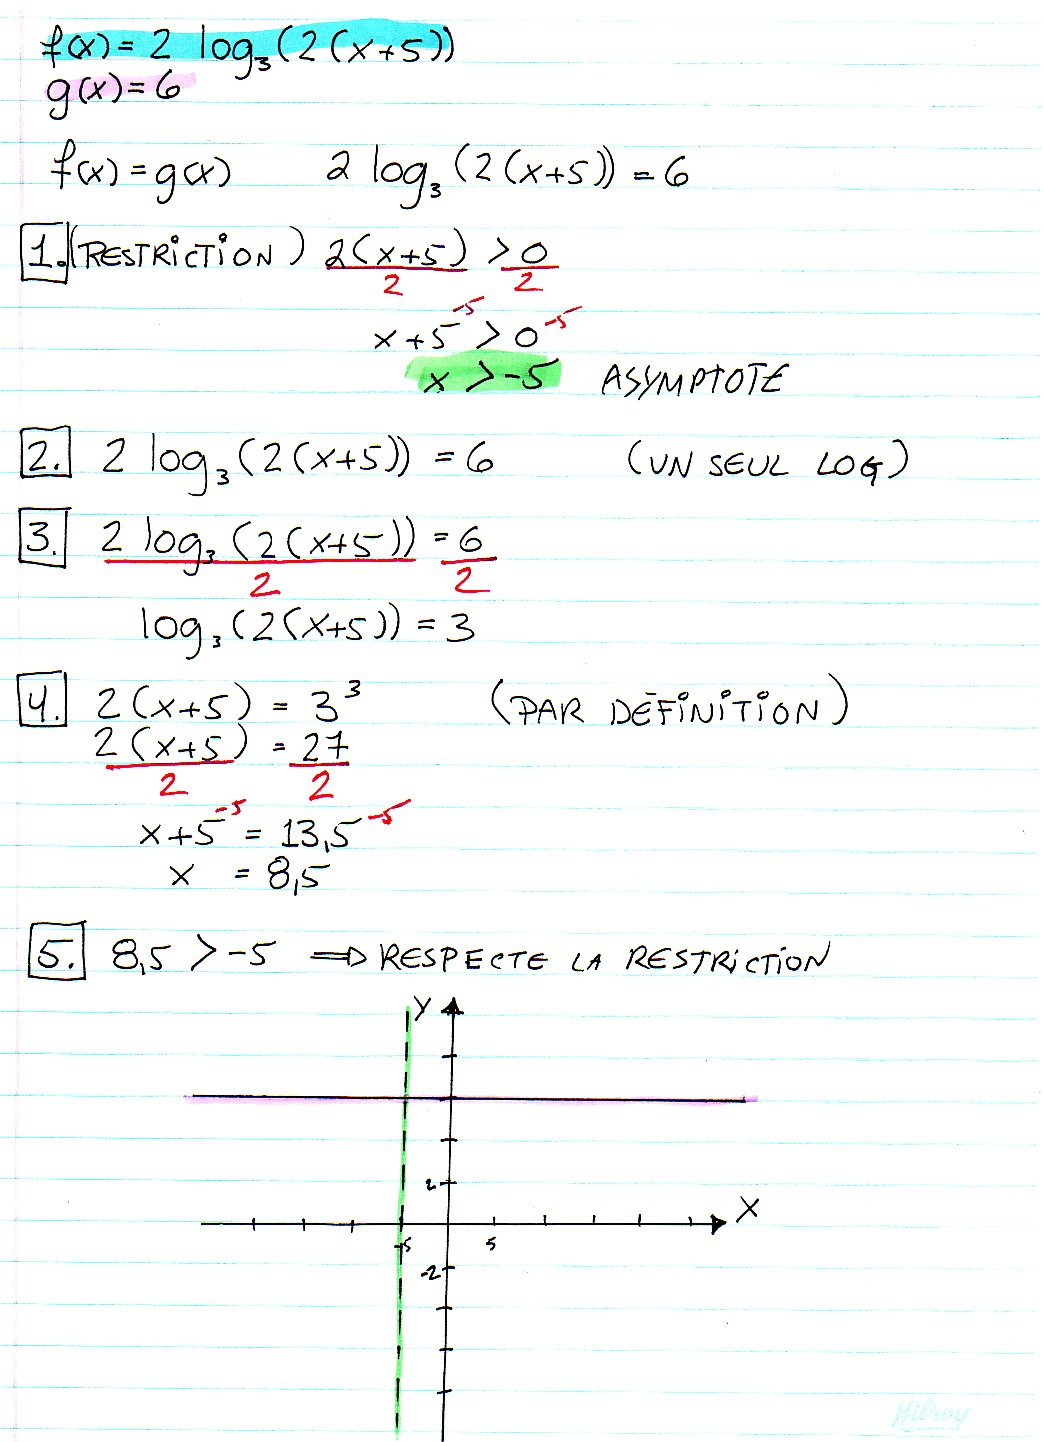 f(x) = 2 log₃(2(x+5))
g(x) = 6
f(x) = g(x) 2 log₃(2(x+5)) = 6
1. (RESTRICTION) 2(x+5) > 0
2 2
x+5 -5 > 0 -5
x > -5 ASYMPTOTE
2. 2 log₃(2(x+5)) = 6 (UN SEUL LOG)
3. 2 log₃(2(x+5)) = 6
2 2
log₃(2(x+5)) = 3
4. 2(x+5) = 3³ (PAR DÉFINITION)
2(x+5) = 27
2 2
x+5 -5 = 13,5 -5
x = 8,5
5. 8,5 > -5 ⇒ RESPECTE LA RESTRICTION
Y
2
X
-5 5
-2
Hilroy